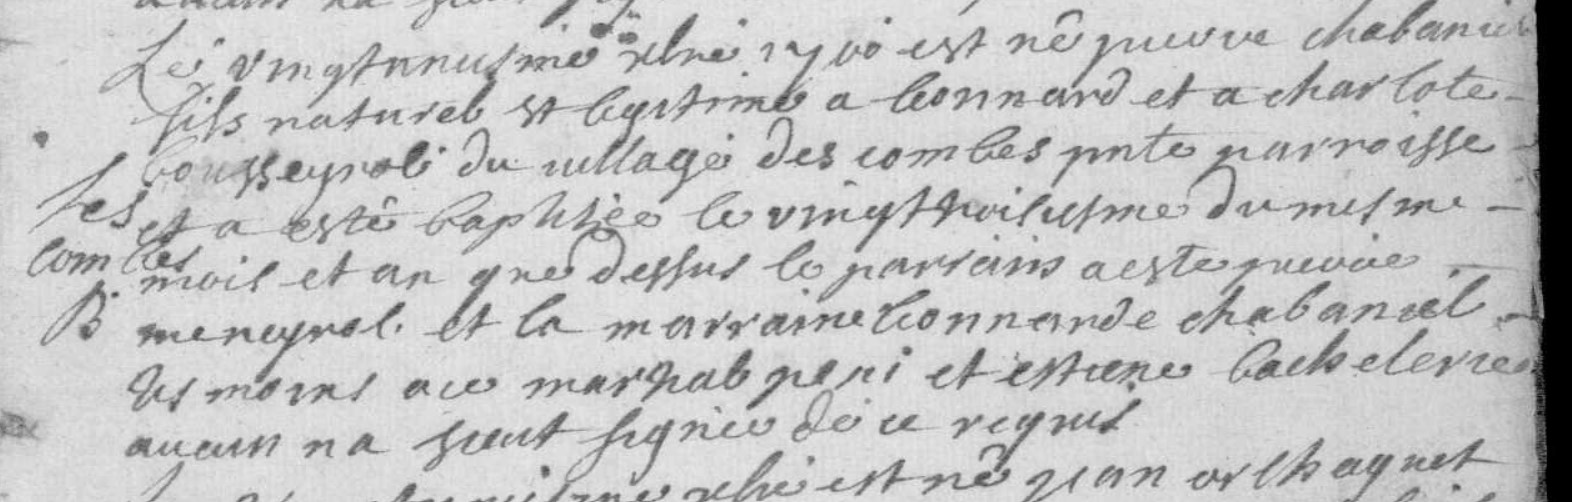 Le vingtuniesme xbre est né pierre chabaniel
fils naturel et legitime a leonnard et a charlote
bousseyrol du village des combes pnte parroisse
Les
et a esté baptisée le vingttroisiesme du mesme
combes
mois et an que dessus le parrains a este pierre
B
meneyrol et la marraine leonnarde chabaniel
tesmoins a ce martial et estiene bachelerie
aucun na sceut signer de ce requis
xbre est né jean